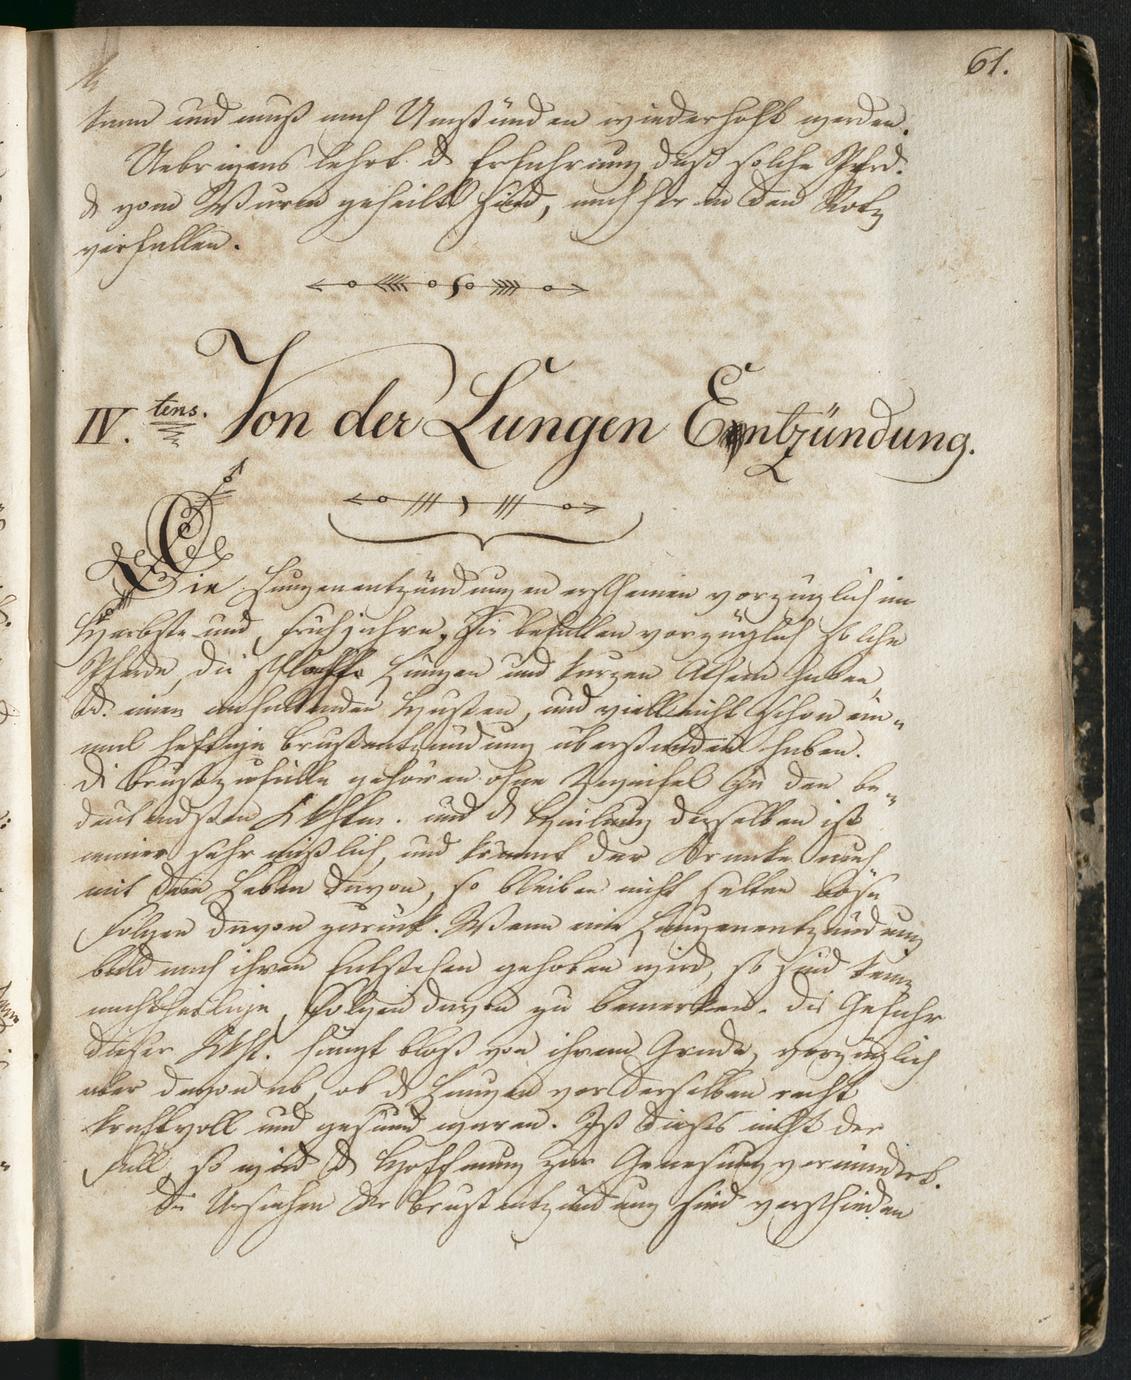 61.
kann und muß nach Umständen wiederhohlt werden.
Uebrigens lehrt d Erfahrung, daß solche Pferd.
d vom Wurm geheilt sind, nachher in den Rotz
verfallen.
IV. tens. Von der Lungen Entzündung.
Die Lungenentzündungen erscheinen vorzüglich im
Herbste und Frühjahre. Sie befallen vorzüglich solche
Pferde, die schlaffe Lungen und kurzen Athem haben
od. einen anhaltenden Husten, und vielleicht schon ein-
mal heftige Brustentzündung überstanden haben.
di Brustzufälle gehören ohne Zweifel zu den be-
deutendsten und d Heilung derselben ist
immer sehr mißlich, und kommt der Kranke auch
mit dem Leben davon, so bleiben nicht selten böse
Folgen davon zurück. Wenn eine Lungenentzündung
bald nach ihren Entstehen gehoben wird, so sind keine
nachtheilige Folgen davon zu bemerken. Die Gefahr
dieser hängt bloß von ihrem Grade, vorzüglich
aber davon ab, ob d Lungen vor derselben recht
kraftvoll und gesund waren. Ist dieses nicht der
Fall, so wird d Hoffnung zur Genesung vermindert.
Di Ursachen der Brustentzündung sind verschieden